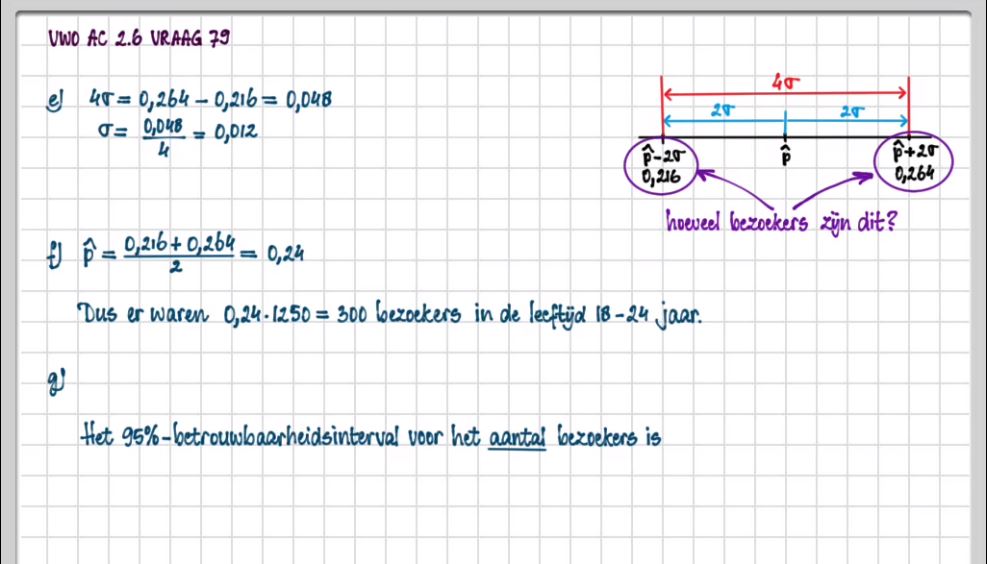 VWO AC 2.6 VRAAG 79
e) 4σ = 0,264 - 0,216 = 0,048
σ = 0,048/4 = 0,012
4σ
2σ 2σ
p̂-2σ p̂ p̂+2σ
0,216 0,264
hoeveel bezoekers zijn dit?
f) p̂ = (0,216 + 0,264)/2 = 0,24
Dus er waren 0,24 · 1250 = 300 bezoekers in de leeftijd 18-24 jaar.
g)
Het 95%-betrouwbaarheidsinterval voor het aantal bezoekers is